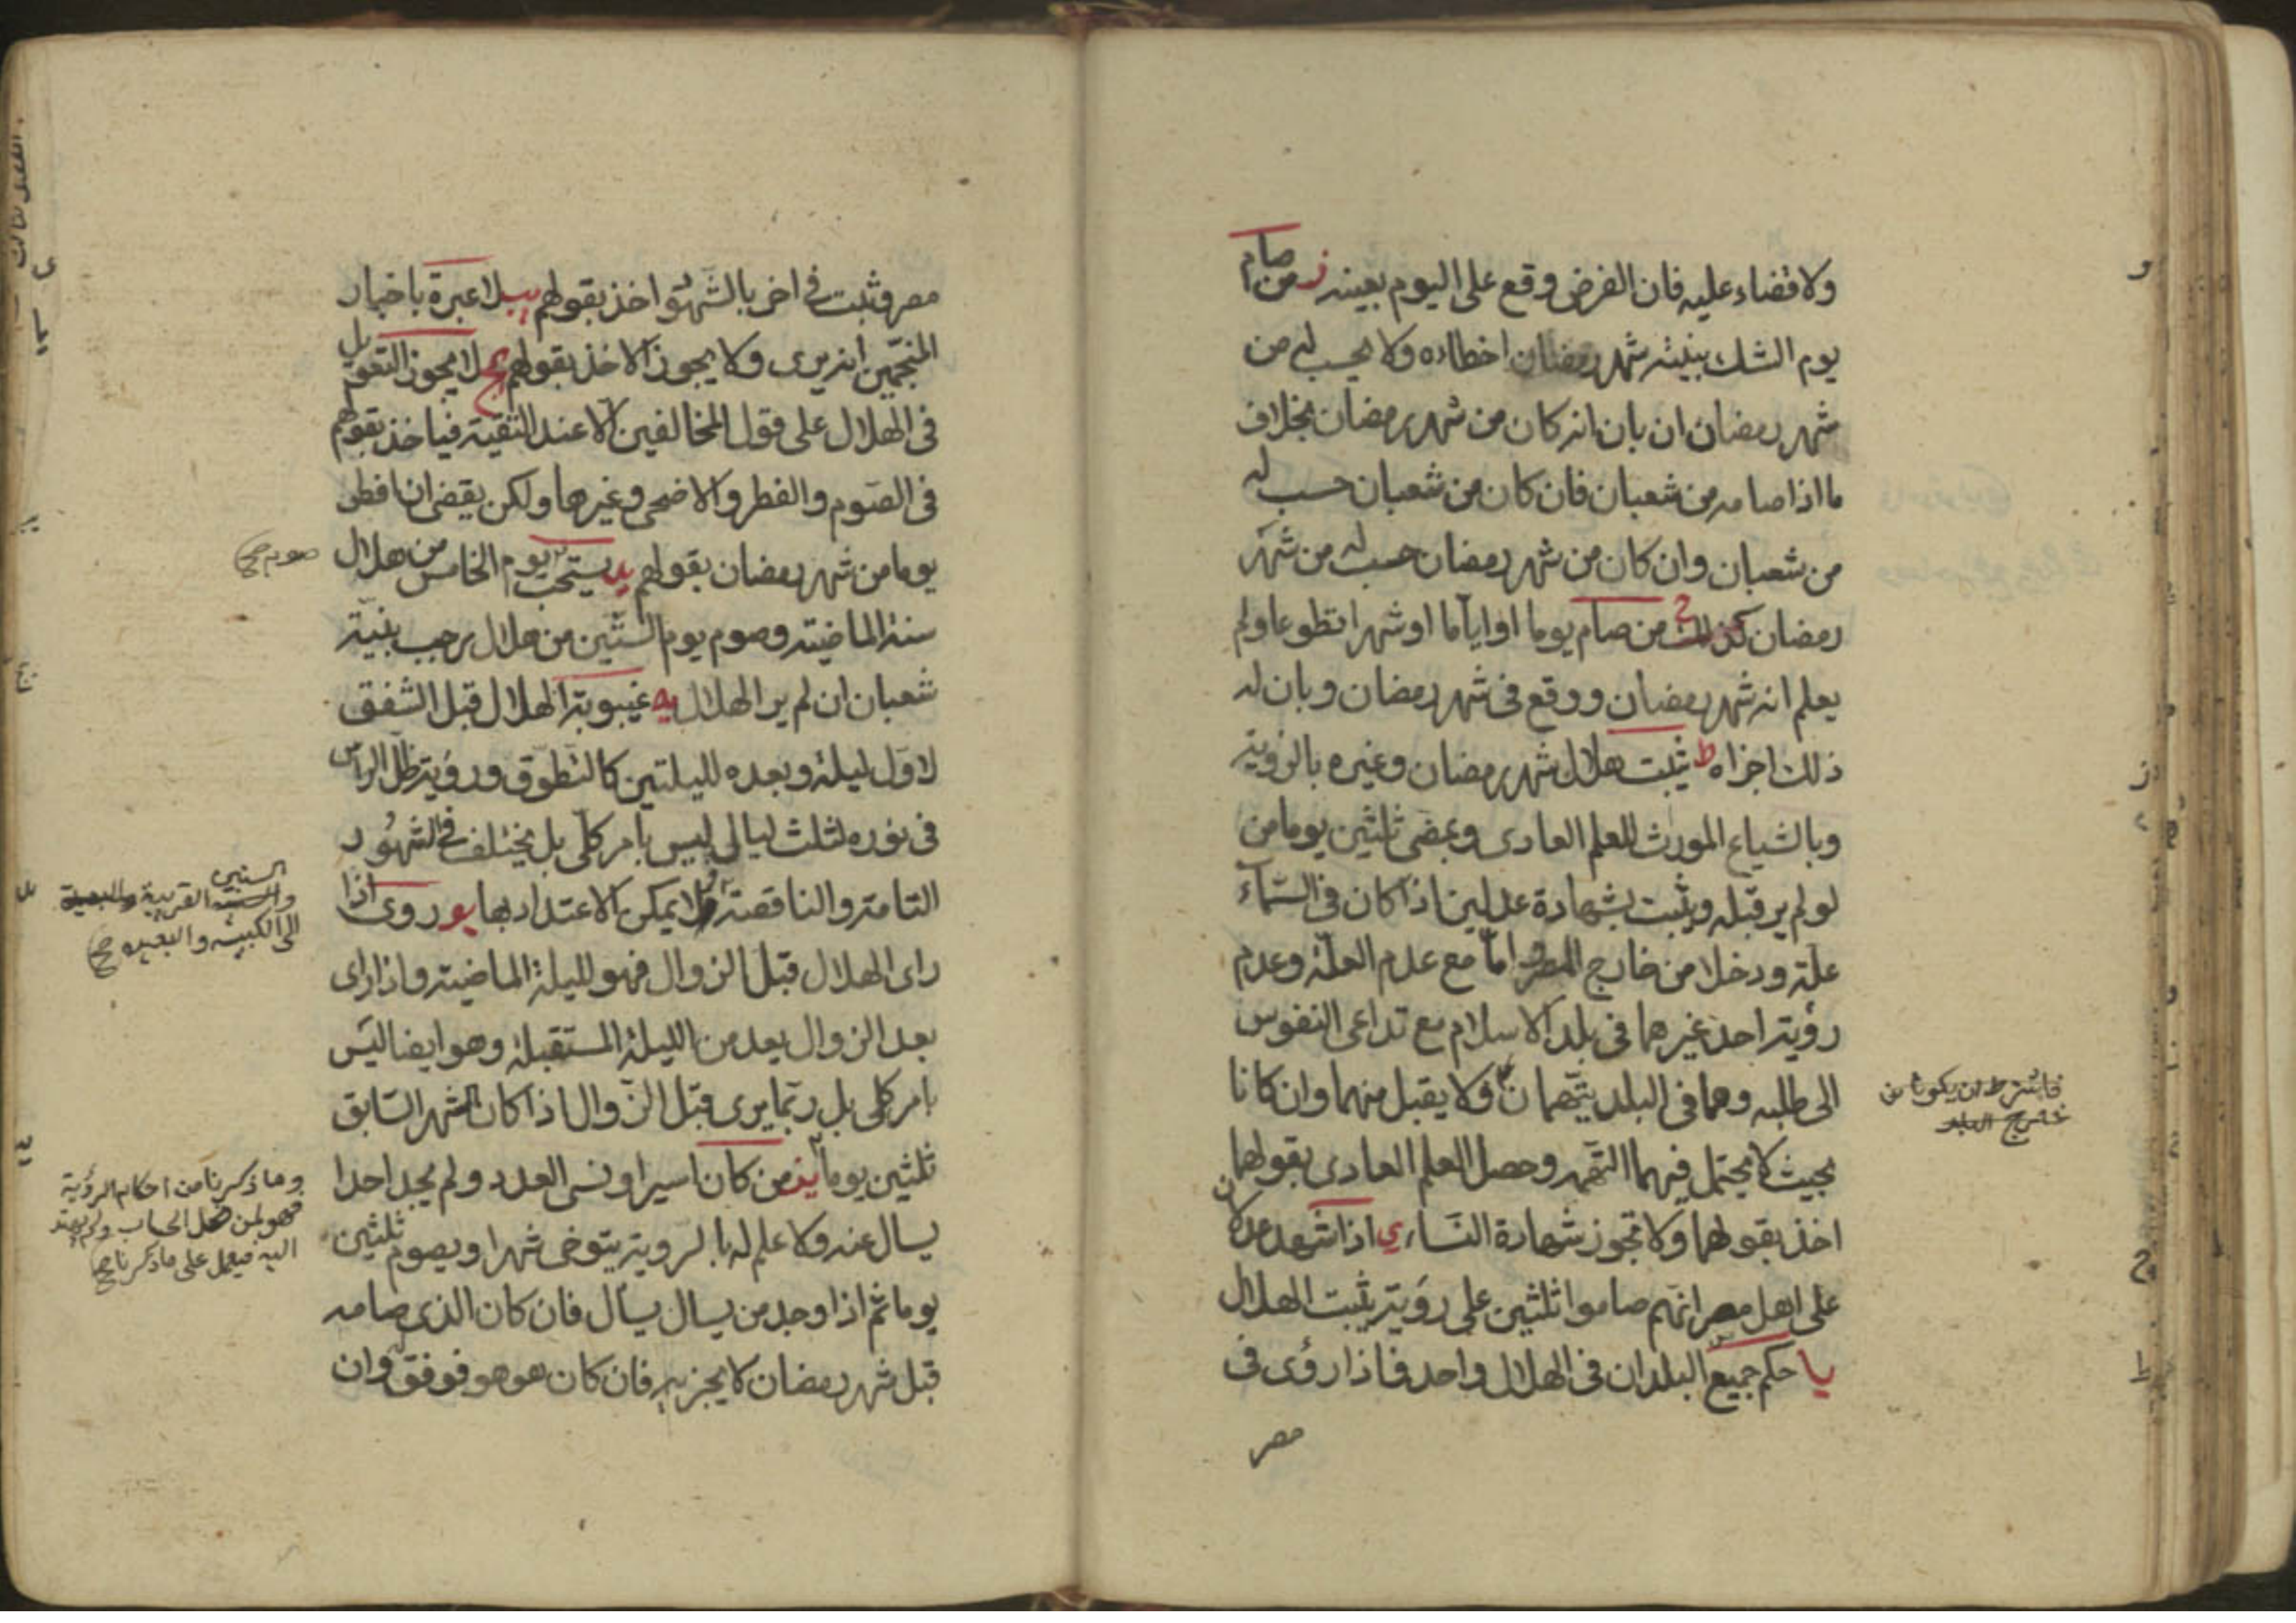 ولا قضاء عليه فان الفرض وقع على اليوم بعينه ز من صام
يوم الشك بنية شهر رمضان اخطاءه ولا يحسب له من
شهر رمضان ان بان انه كان من شهر رمضان بخلاف
ما اذا صامه من شعبان فان كان من شعبان حسب له
من شعبان وان كان من شهر رمضان حسب له من شهر
رمضان كذلك ح من صام يوما او اياما او شهرا تطوعا ولم
يعلم انه شهر رمضان ووقع فى شهر رمضان وبان له
ذلك اجزاه ط يثبت هلال شهر رمضان وغيره بالرؤية
وبالشياع المورث للعلم العادى وبمضى ثلثين يوما من
لو لم ير قبله ويثبت بشهادة عدلين اذا كان فى السماء
علة ودخلا من خارج المصر و اما مع عدم العلة وعدم
رؤية احد غيرهما فى بلد الاسلام مع تداعى النفوس
الى طلبه وهما فى البلد يتهمان ولا يقبل منهما وان كانا
بحيث لا يحتمل فيهما التهمة وحصل العلم العادى بقولهما
اخذ بقولهما ولا تجوز شهادة النساء ي اذا شهد عدلان
على اهل مصر انهم صاموا ثلثين على رؤية يثبت الهلال
يا حكم جميع البلدان فى الهلال واحد فاذا رؤى فى
مصر
فاشترط ان يكونا من
خارج البلد
مصر وثبت فى اخر بالشهود اخذ بقولهم يب لا عبرة باخبار
المنجمين انه يرى ولا يجوز الاخذ بقولهم يج لا يجوز التعويل
فى الهلال على قول المخالفين الا عند التقية فياخذ بقولهم
فى الصوم والفطر والاضحى وغيرها ولكن يقضى ان افطر
يوما من شهر رمضان بقولهم يد يستحب يوم الخامس من هلال
سنة الماضية وصوم يوم الستين من هلال رجب بنية
شعبان ان لم ير الهلال يه غيبوبة الهلال قبل الشفق
لاول ليلة وبعده لليلتين كالتطوق ورؤية ظل الراس
فى نوره لثلث ليالى ليس بامر كلى بل يختلف فى الشهور
التامة والناقصة لا يمكن الاعتداد بها يو روى اذا
راى الهلال قبل الزوال فهو لليلة الماضية واذا راى
بعد الزوال يعد من الليلة المستقبلة وهو ايضا ليس
بامر كلى بل ربما يرى قبل الزوال اذا كان الشهر السابق
ثلثين يوما يز من كان اسيرا ونسى العدد ولم يجد احدا
يسال عنه ولا علم له بالرؤية يتوخى شهرا ويصوم ثلثين
يوما ثم اذا وجد من يسال يسال فان كان الذى صامه
قبل شهر رمضان لا يجزيه فان كان هو هو فوفق وان
صوم صح
السنين
القريبة والبعيدة
الكبيسة والبعيدة صح
وما ذكرنا من احكام الرؤية
فهو لمن الحساب ولم يهتد
اليه فيعمل على ما ذكرنا صح